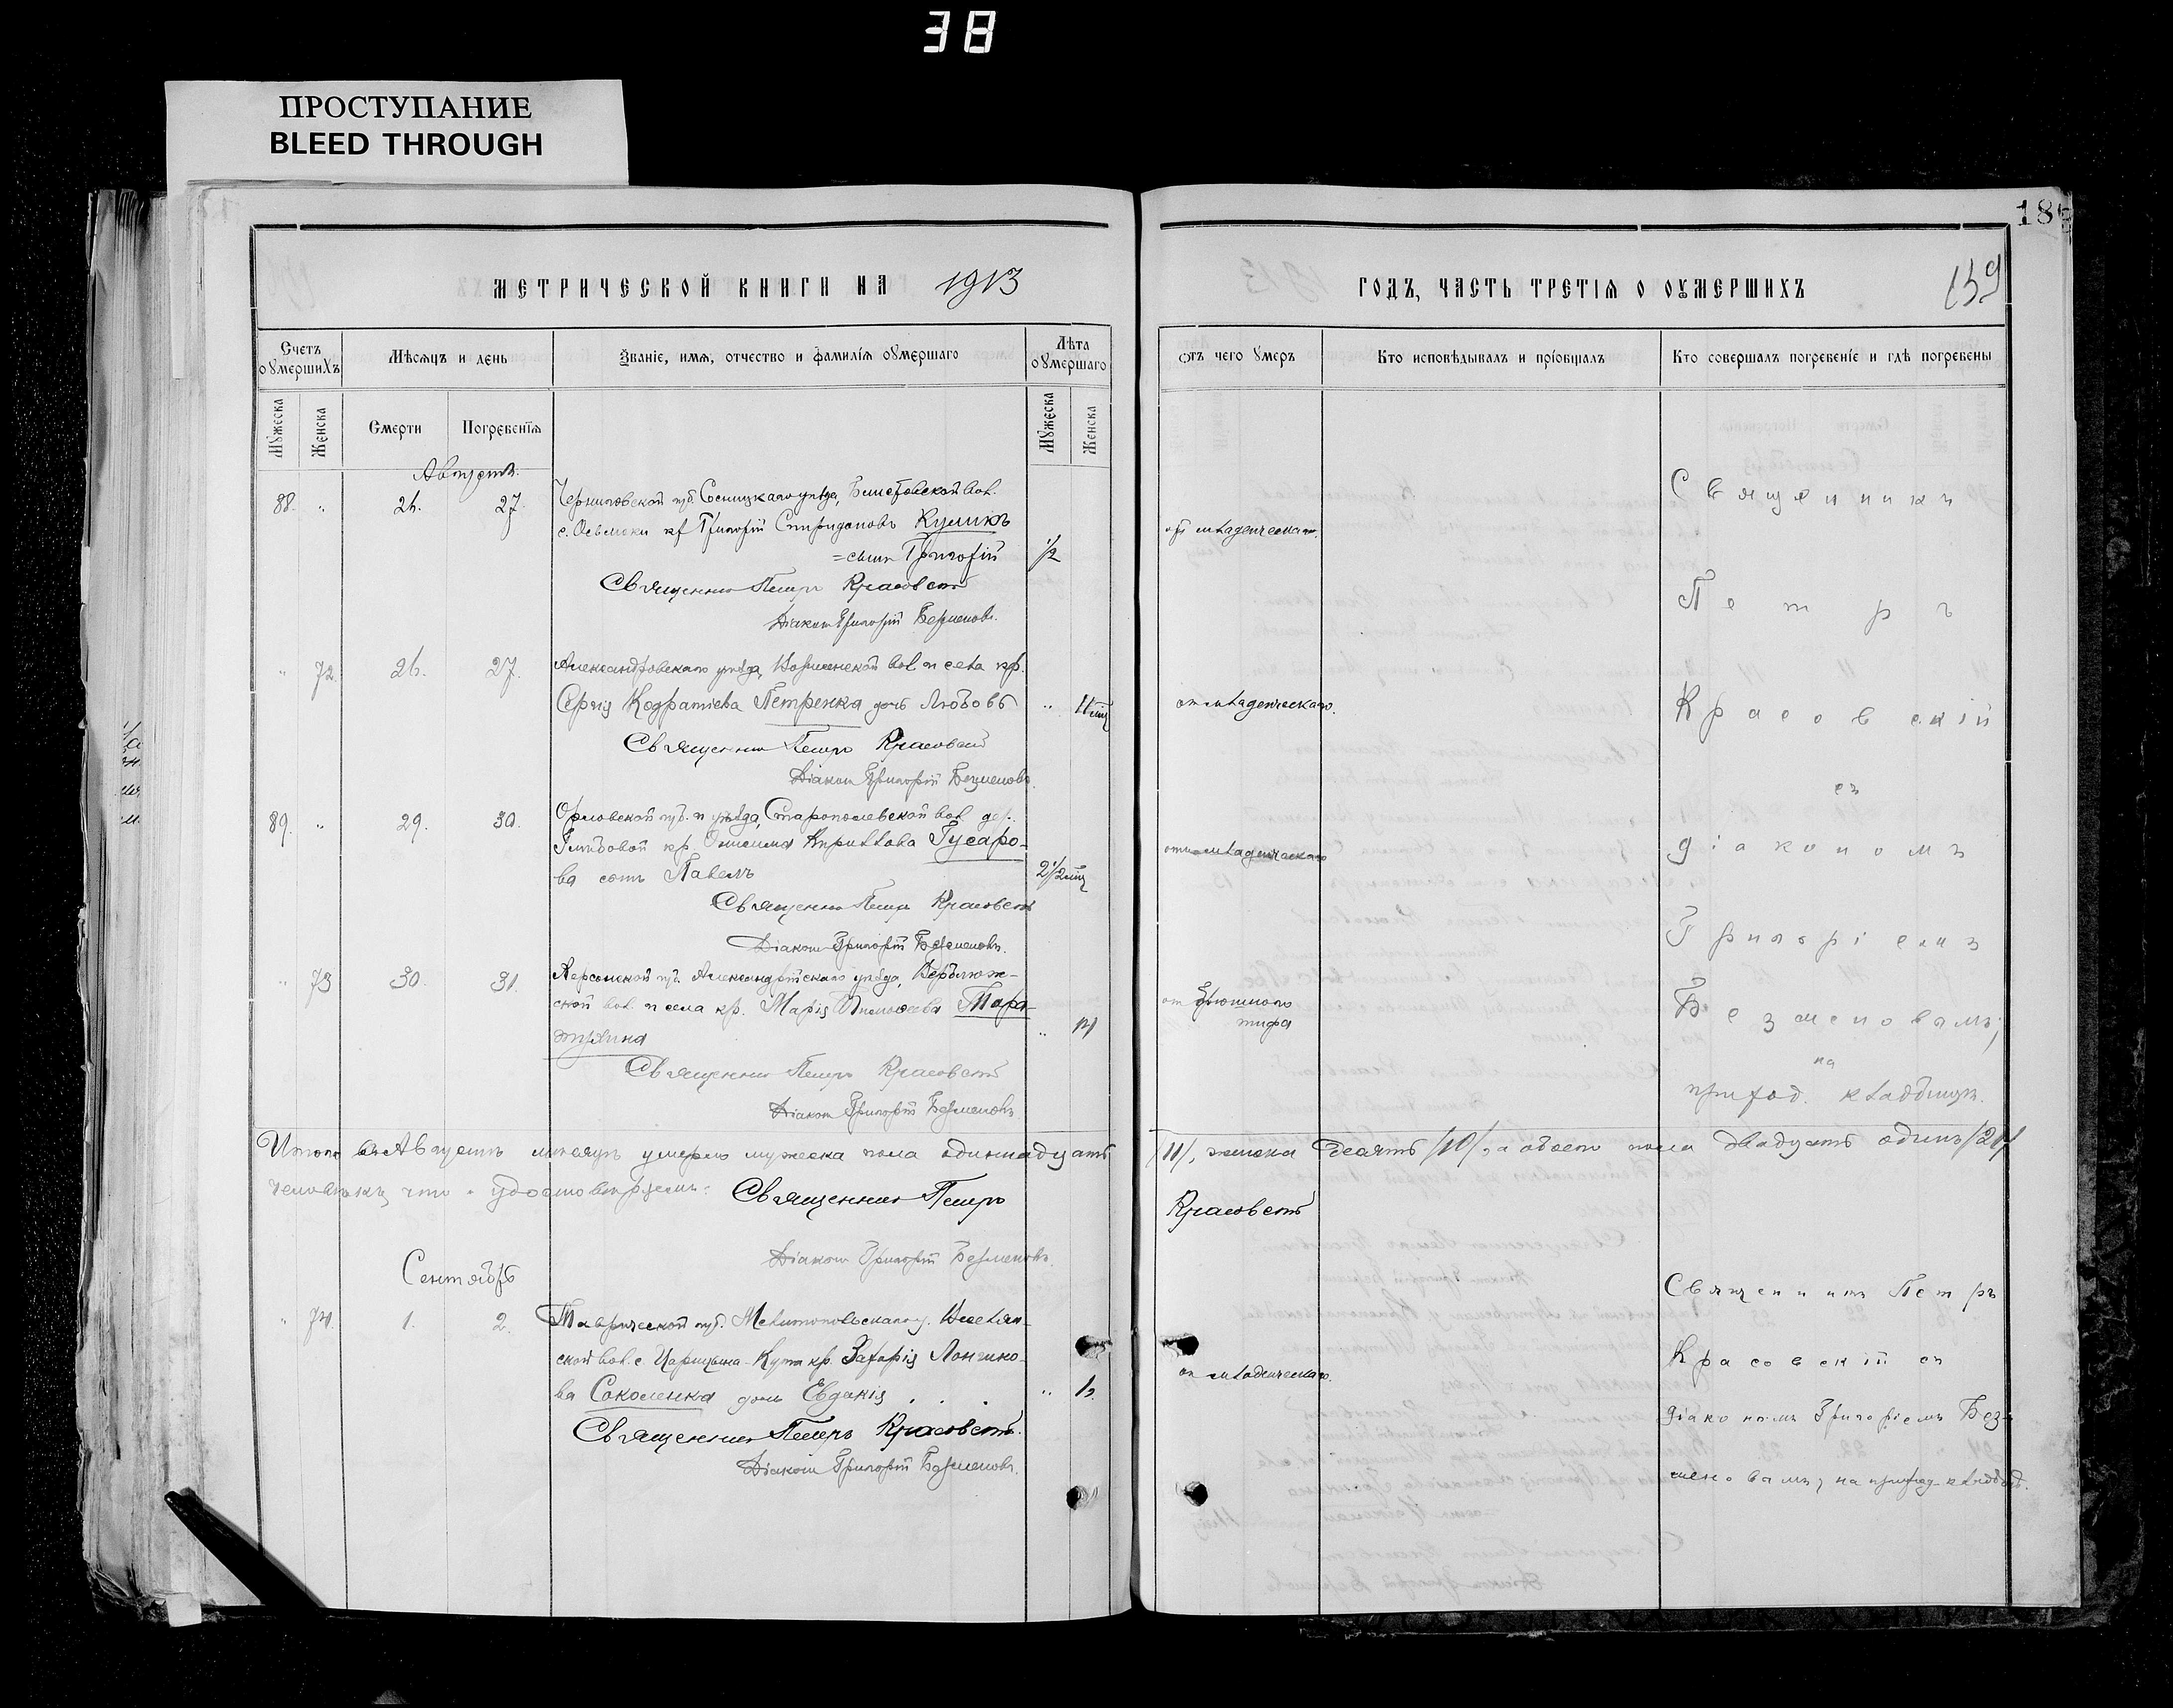 38
ПРОСТУПАНИЕ
BLEED THROUGH
МЕТРИЧЕСКОЙ КНИГИ НА 1913
Счетъ оумершихъ
Мѣсяцъ и день
Званіе, имя, отчество и фамилія оумершаго
Лѣта оумершаго
Мужеска
Женска
Смерти
Погребенія
Мужеска
Женска
Августъ.
88. " 26. 27. Черниговской губ. Сосницкаго уѣзда, вол.
с. кр. Григорій Спиридоновъ Куликъ
= сынъ Григорій 1/2
Священникъ Петръ Красовскій
Діаконъ Григорій Безменовъ.
" 72. 26. 27. Александровскаго уѣзда, вол. и села кр.
Сергія Кодратіева Петренка дочь Любовь " 11 мц
Священникъ Петръ Красовскій
Діаконъ Григорій Безменовъ.
89. " 29. 30. Орловской губ. и уѣзда, вол. дер.
кр. Кириллова Гусаро-
ва сынъ Павелъ 2 1/2 мц
Священникъ Петръ Красовскій
Діаконъ Григорій Безменовъ.
" 73 30. 31. Херсонской губ. Александрійскаго уѣзда, Верблюж-
ской вол. и села кр. Марія Тимоѳеева
"
Священникъ Петръ Красовскій
Діаконъ Григорій Безменовъ
Итого въ Августѣ мѣсяцѣ умерло мужеска пола одиннадцать
человѣкъ, что и удостовѣряемъ: Священникъ Петръ
Діаконъ Григорій Безменовъ.
Сентябрь
" 74. 1. 2. Таврической губ. Мелитопольскаго у.
ской вол. с. Царицына-Кута кр. Захарія Лонгино-
ва Соколенка дочь Евдокія . . . "
Священникъ Петръ Красовскій.
Діаконъ Григорій Безменовъ.
186
ГОДЪ, ЧАСТЬ ТРЕТІЯ О ОУМЕРШИХЪ
159
отъ чего умеръ
Кто исповѣдывалъ и пріобщалъ
Кто совершалъ погребеніе и гдѣ погребены
Священникъ
от младенческаго.
Петръ
от младенческаго.
Красовскій
съ
от младенческаго
діакономъ
Григоріемъ
от брюшного
тифа
Безменовымъ;
на
приход. кладбищѣ.
/11/, женска десять /10/, а обоего пола двадцать одинъ /21/
Красовскій
Священникъ Петръ
от младенческаго.
Красовскій съ
діакономъ Григоріемъ Без-
меновымъ, на приход. кладб.